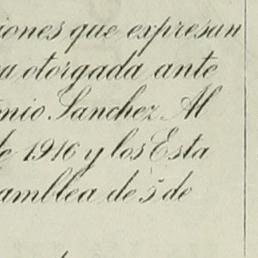 iones que expresan
a otorgada ante
nio Sanchez Al
de 1916 y los Esta
amblea de 5 de